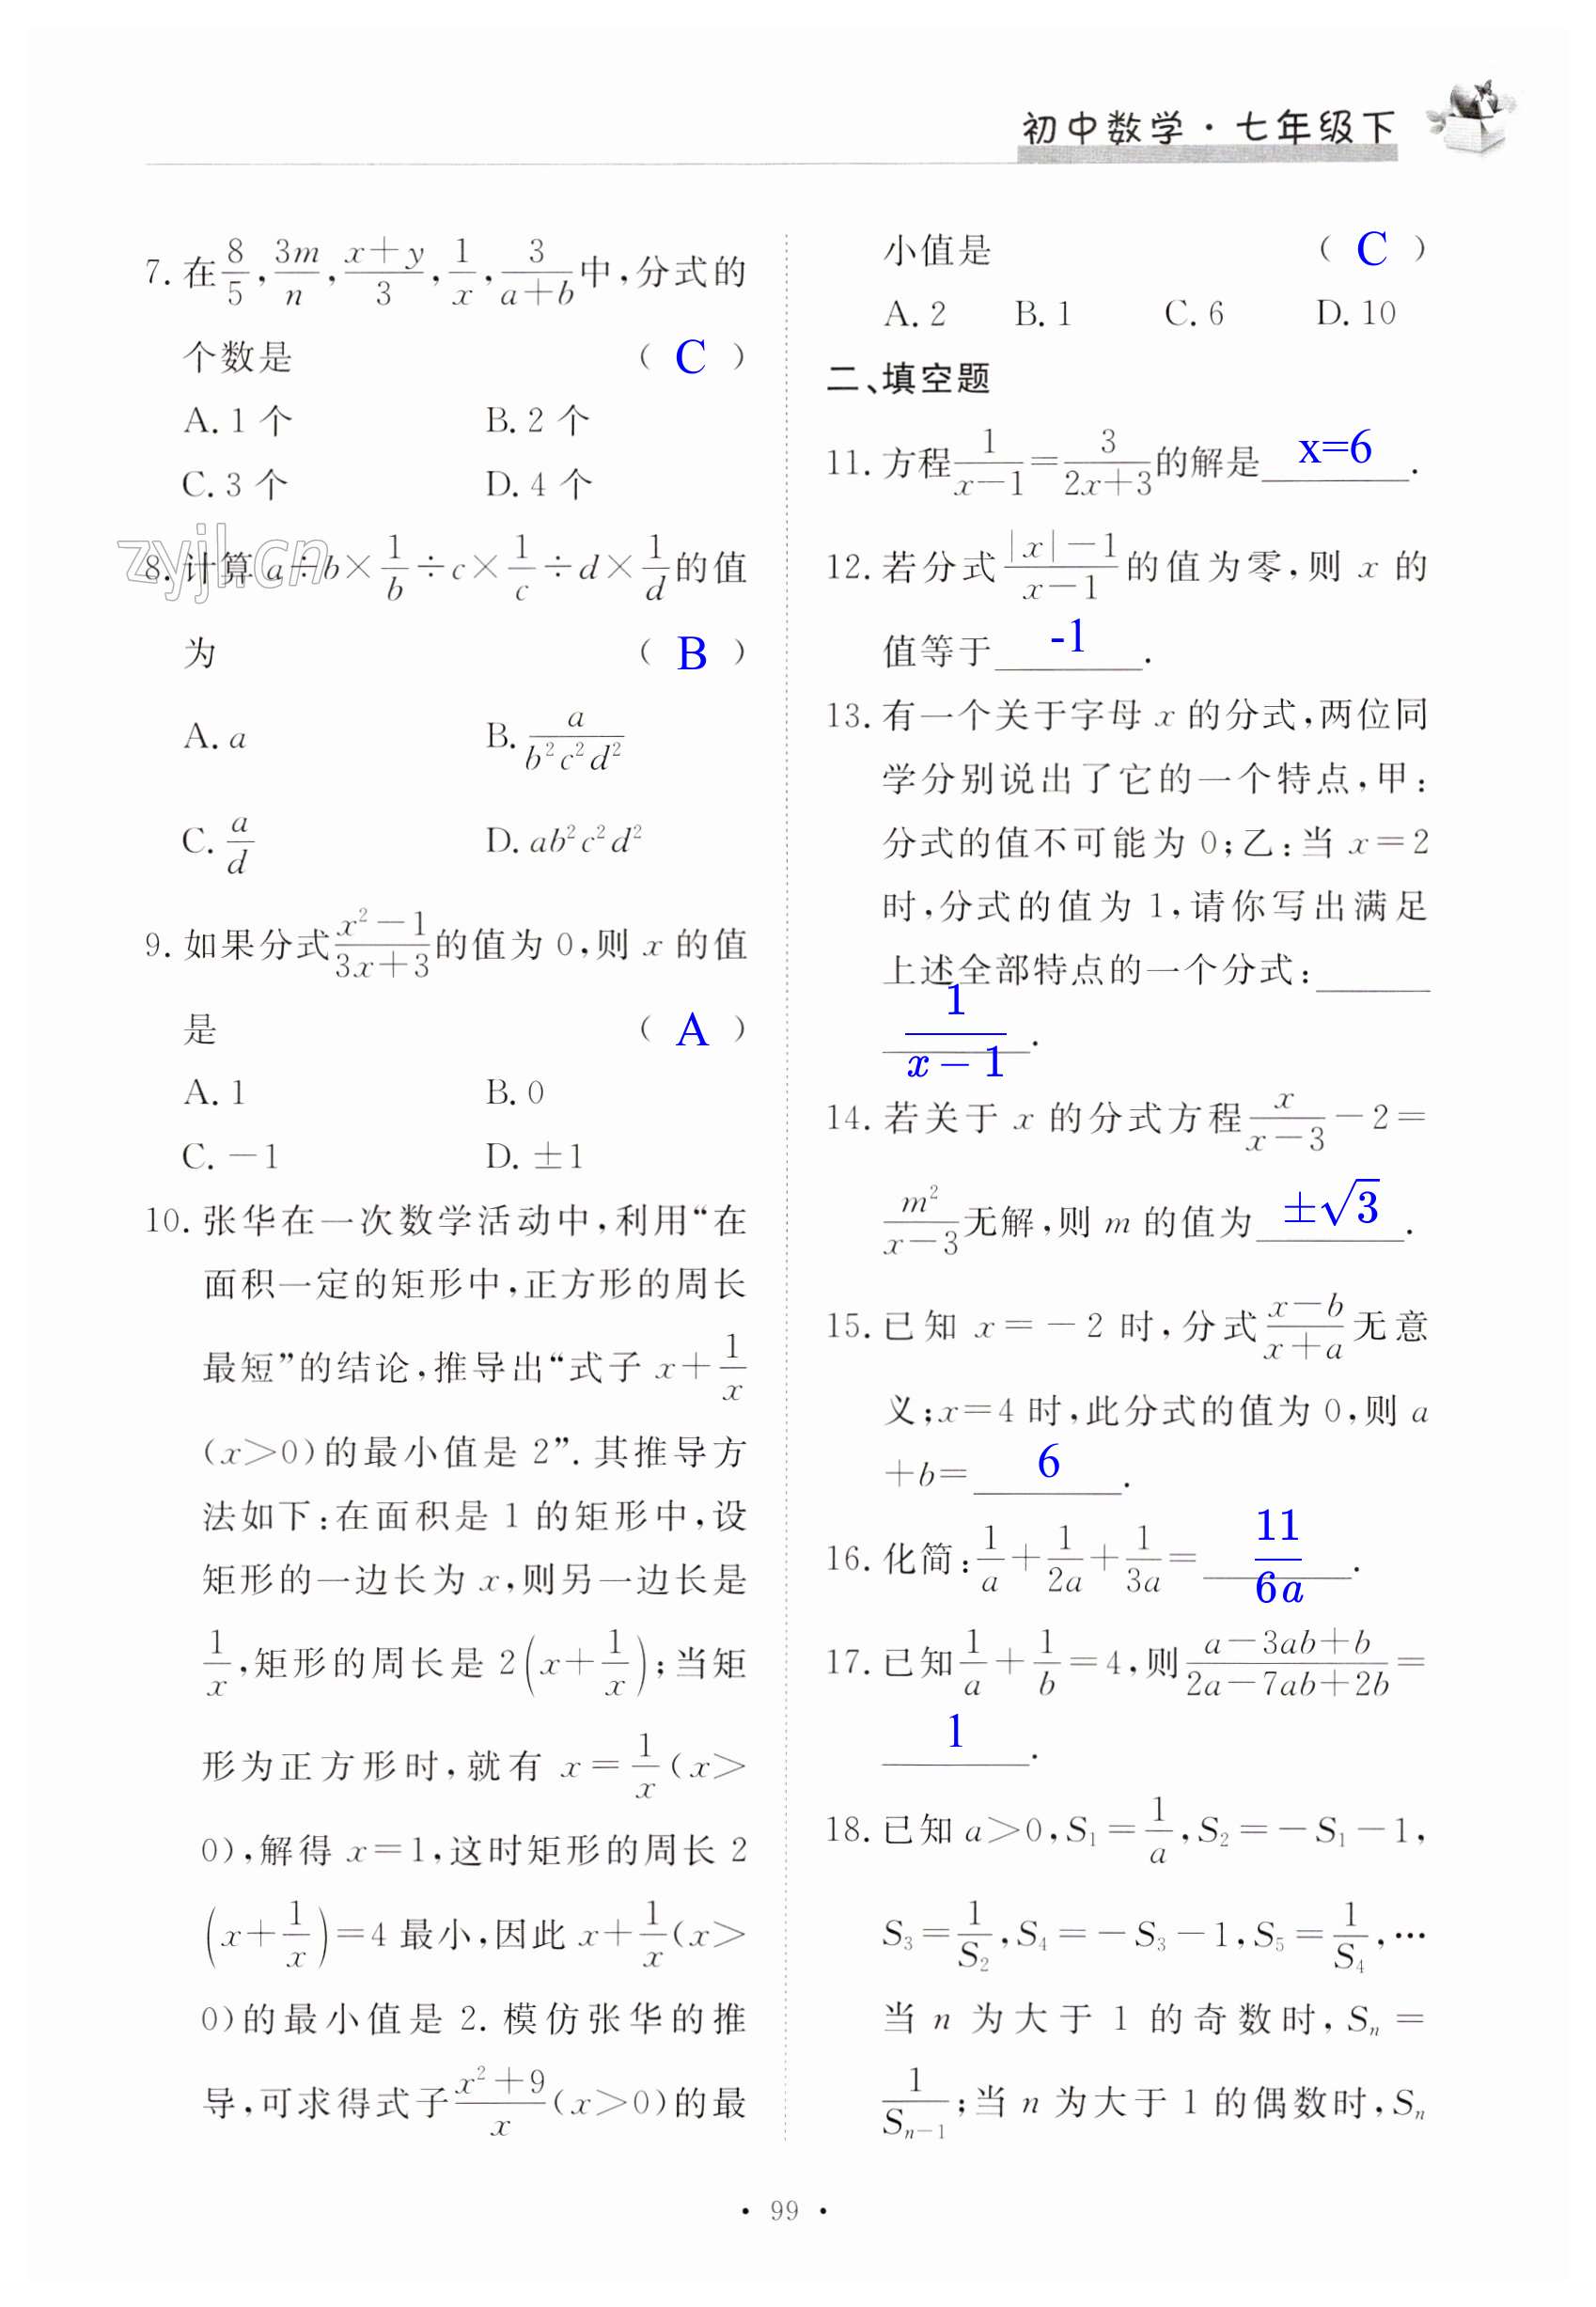 初中数学·七年级下
7. 在8/5,3m/n,(x+y)/3,1/x,3/(a+b)中,分式的
个数是 ( C )
A. 1 个 B. 2 个
C. 3 个 D. 4 个
zyjl.cn
8. 计算 a÷b×1/b÷c×1/c÷d×1/d的值
为 ( B )
A. a B. a/(b²c²d²)
C. a/d D. ab²c²d²
9. 如果分式(x²-1)/(3x+3)的值为 0,则 x 的值
是 ( A )
A. 1 B. 0
C. -1 D. ±1
10. 张华在一次数学活动中,利用“在
面积一定的矩形中,正方形的周长
最短”的结论,推导出“式子 x+1/x
(x>0)的最小值是 2”. 其推导方
法如下:在面积是 1 的矩形中,设
矩形的一边长为 x,则另一边长是
1/x,矩形的周长是 2(x+1/x);当矩
形为正方形时,就有 x=1/x(x>
0),解得 x=1,这时矩形的周长 2
(x+1/x)=4 最小,因此 x+1/x(x>
0)的最小值是 2. 模仿张华的推
导,可求得式子(x²+9)/x(x>0)的最
小值是 ( C )
A. 2 B. 1 C. 6 D. 10
二、填空题
11. 方程1/(x-1)=3/(2x+3)的解是 x=6 .
12. 若分式(|x|-1)/(x-1)的值为零,则 x 的
值等于 -1 .
13. 有一个关于字母 x 的分式,两位同
学分别说出了它的一个特点,甲:
分式的值不可能为 0;乙:当 x=2
时,分式的值为 1,请你写出满足
上述全部特点的一个分式:
1/(x-1) .
14. 若关于 x 的分式方程x/(x-3)-2=
m²/(x-3)无解,则 m 的值为 ±√3 .
15. 已知 x=-2 时,分式(x-b)/(x+a)无意
义;x=4 时,此分式的值为 0,则 a
+b= 6 .
16. 化简:1/a+1/2a+1/3a= 11/6a .
17. 已知1/a+1/b=4,则(a-3ab+b)/(2a-7ab+2b)=
1 .
18. 已知 a>0,S₁=1/a,S₂=-S₁-1,
S₃=1/S₂,S₄=-S₃-1,S₅=1/S₄,…
当 n 为大于 1 的奇数时,Sₙ=
1/Sₙ₋₁;当 n 为大于 1 的偶数时,Sₙ
· 99 ·